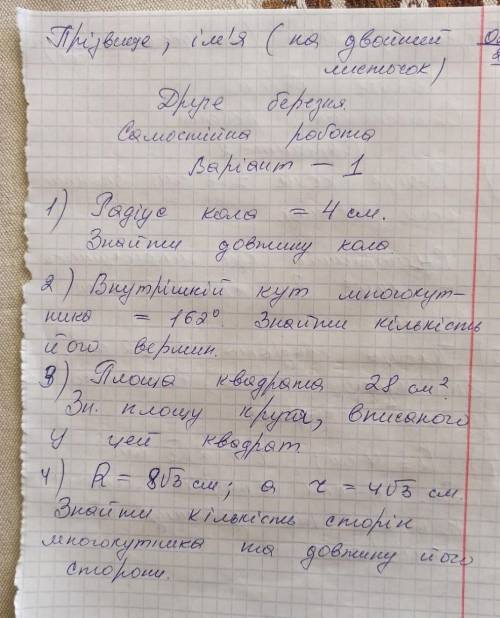 Прізвище, ім'я (на двойний
листочок)
Друге березня.
Самостійна робота
Варіант – 1
1) Радіус кола = 4 см.
Знайти довжину кола.
2) Внутрішній кут многокут-
ника = 162° Знайти кількість
його вершин.
3) Площа квадрата 28 см².
Зн. площу круга, вписаного
у цей квадрат.
4) R = 8√3 см; а r = 4√3 см.
Знайти кількість сторін
многокутника та довжину його
сторони.